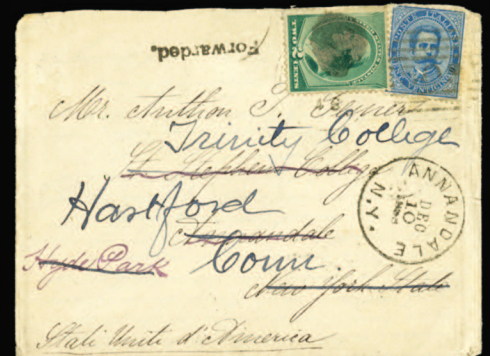 Forwarded.
TWO 2 CENTS
Mr. Anthon T.
Trinity College
St Stephens College
Hartford
Annandale
Hyde Park
Conn
New York State
Stati Uniti d'America
ANNANDALE
DEC
10
N.Y.